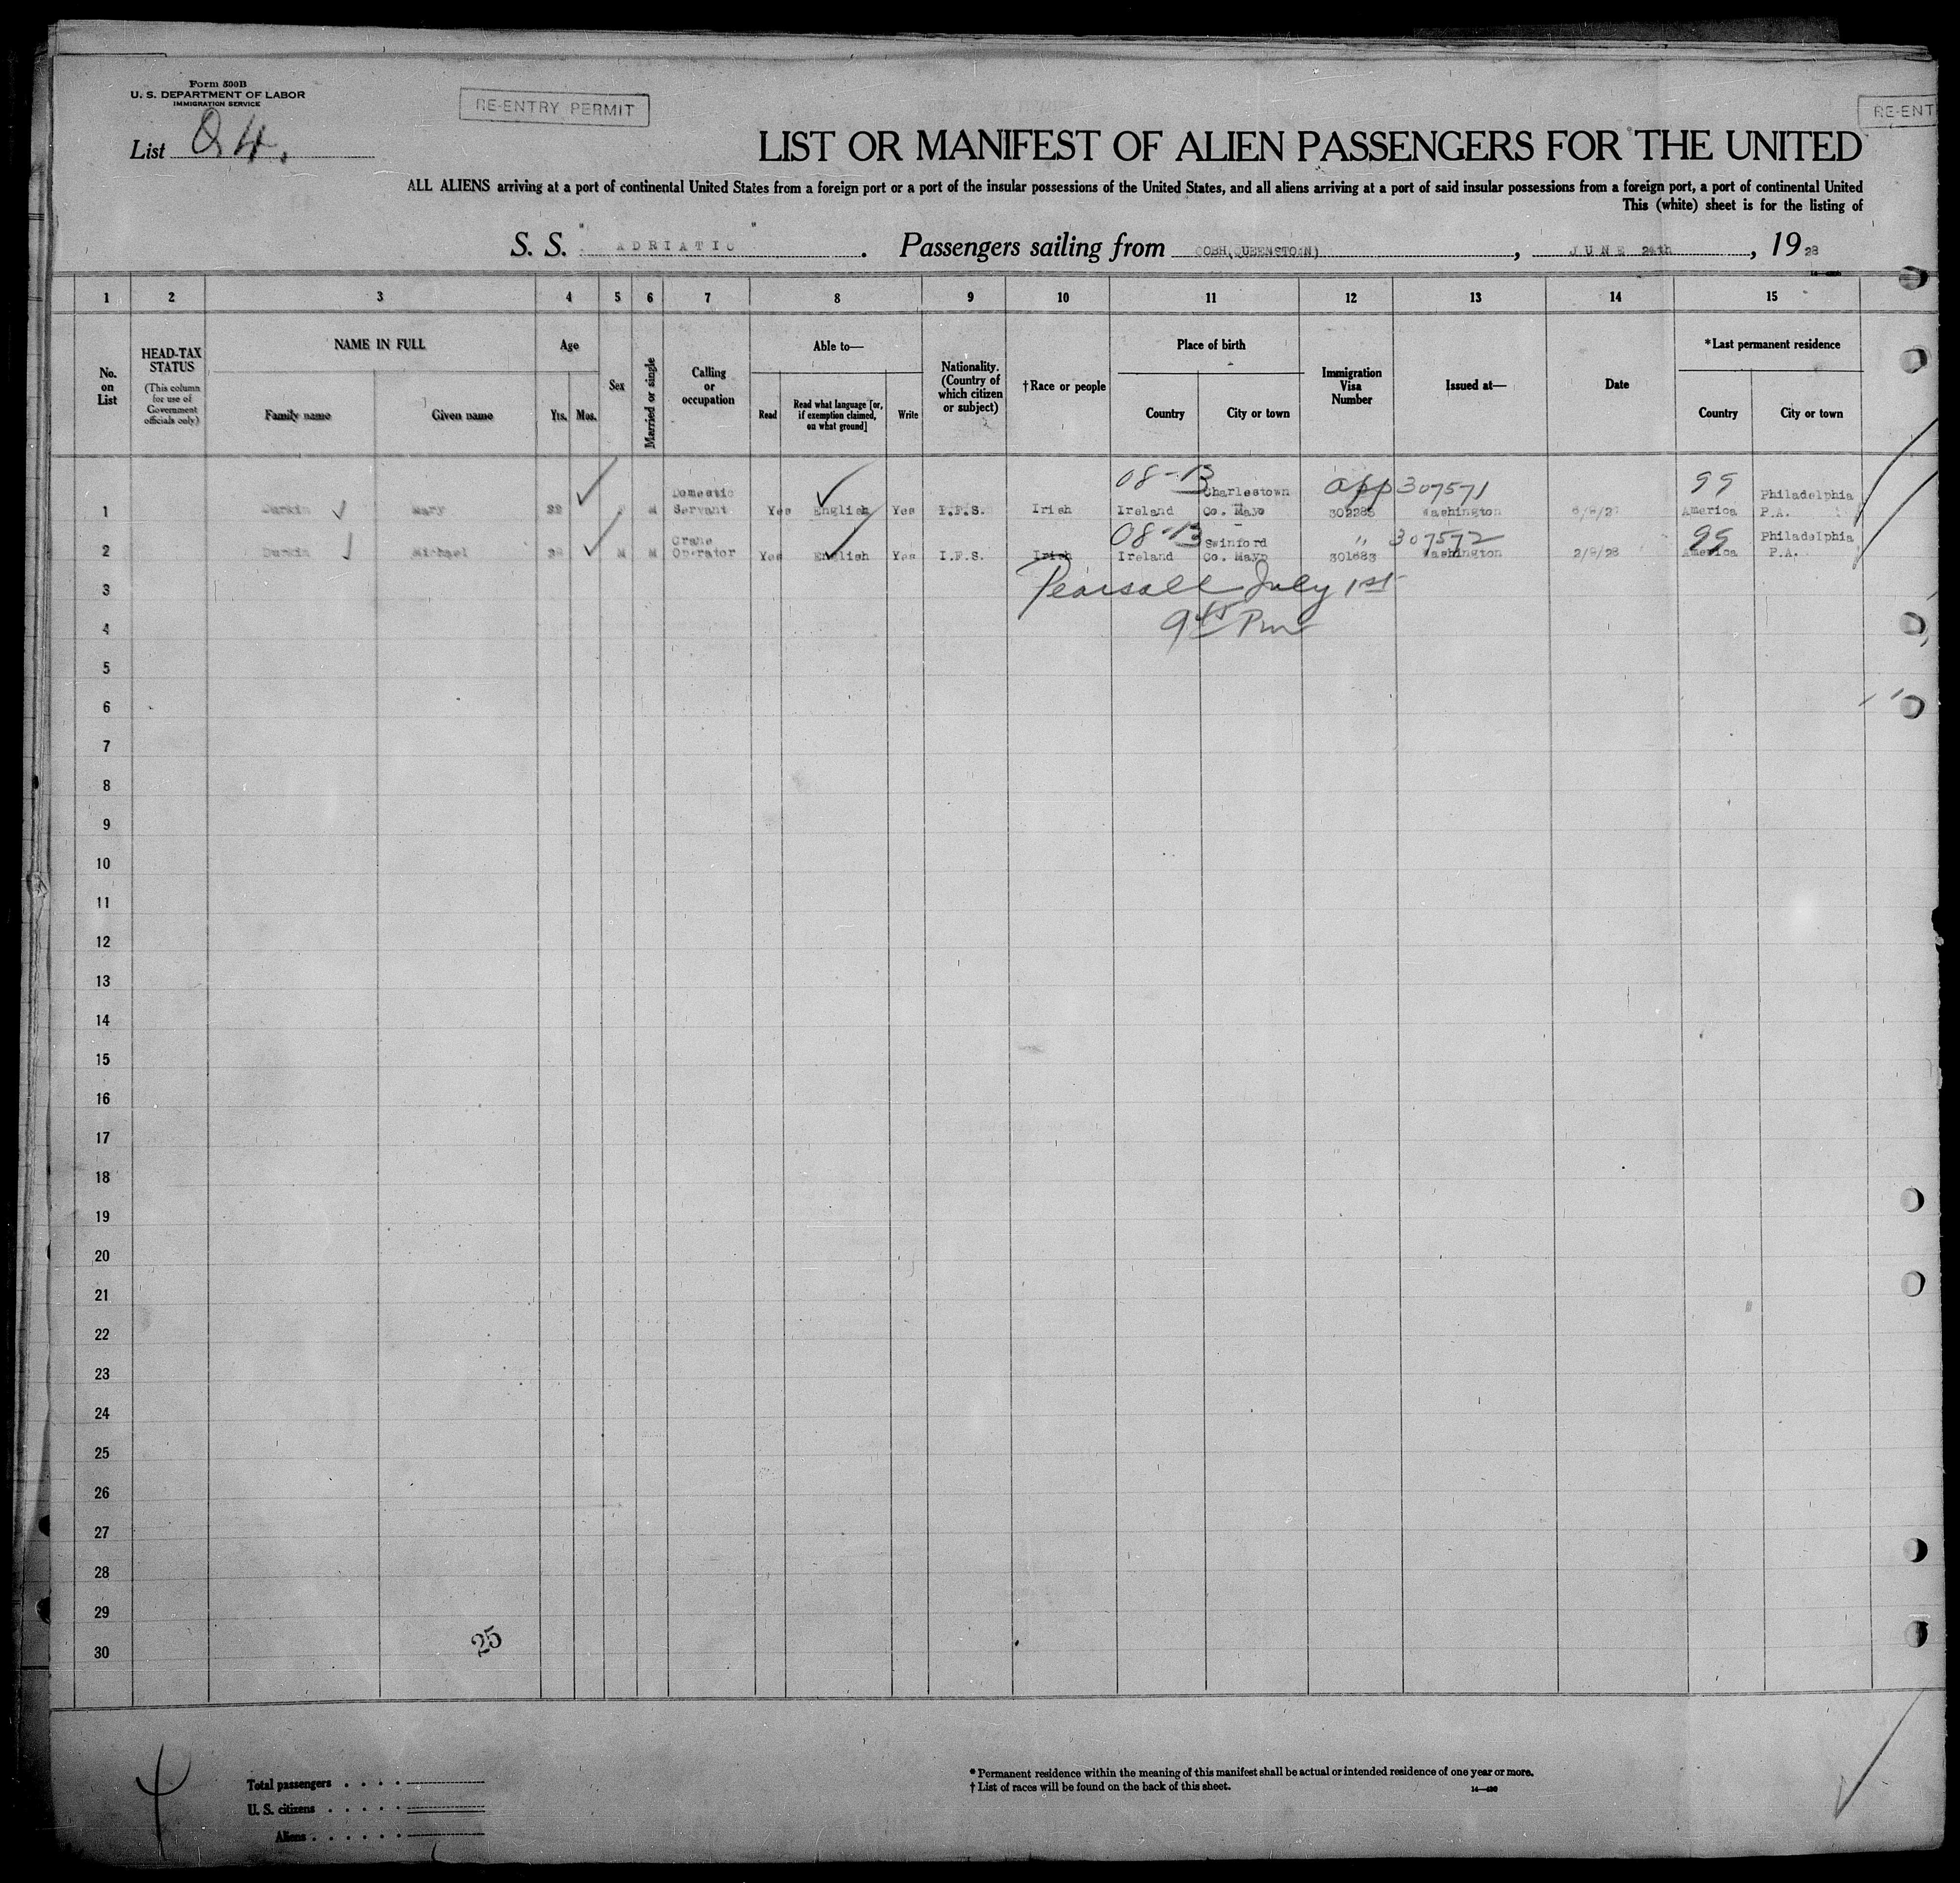 Form 500B
U. S. DEPARTMENT OF LABOR
IMMIGRATION SERVICE
RE-ENTRY PERMIT
RE-ENT
List 84.
LIST OR MANIFEST OF ALIEN PASSENGERS FOR THE UNITED
ALL ALIENS arriving at a port of continental United States from a foreign port or a port of the insular possessions of the United States, and all aliens arriving at a port of said insular possessions from a foreign port, a port of continental United
This (white) sheet is for the listing of
S. S. " ADRIATIC " . Passengers sailing from COBH(QUEENSTOWN) , JUNE 24th , 1928
1 2 3 4 5 6 7 8 9 10 11 12 13 14 15
No. on List
HEAD-TAX STATUS
(This column for use of Government officials only)
NAME IN FULL
Family name Given name
Age
Yrs. Mos.
Sex
Married or single
Calling or occupation
Able to—
Read Read what language [or, if exemption claimed, on what ground] Write
Nationality. (Country of which citizen or subject)
†Race or people
Place of birth
Country City or town
Immigration Visa Number
Issued at—
Date
*Last permanent residence
Country City or town
08-13 app 307571 99
Domestic Charlestown Philadelphia
1 Durkin Mary F M Servant Yes English Yes I.F.S. Irish Ireland Co. Mayo 302285 Washington America P.A.
08-13 " 307572 99
Crane Swinford Philadelphia
2 Durkin Michael M M Operator Yes English Yes I.F.S. Irish Ireland Co. Mayo 301683 Washington 2/9/28 America P.A.
3 Pearsall July 1st
4 9 45 Pm
5
6
7
8
9
10
11
12
13
14
15
16
17
18
19
20
21
22
23
24
25
26
27
28
29
30
25
Total passengers . . . .
U. S. citizens . . . . .
Aliens . . . . . .
* Permanent residence within the meaning of this manifest shall be actual or intended residence of one year or more.
† List of races will be found on the back of this sheet.